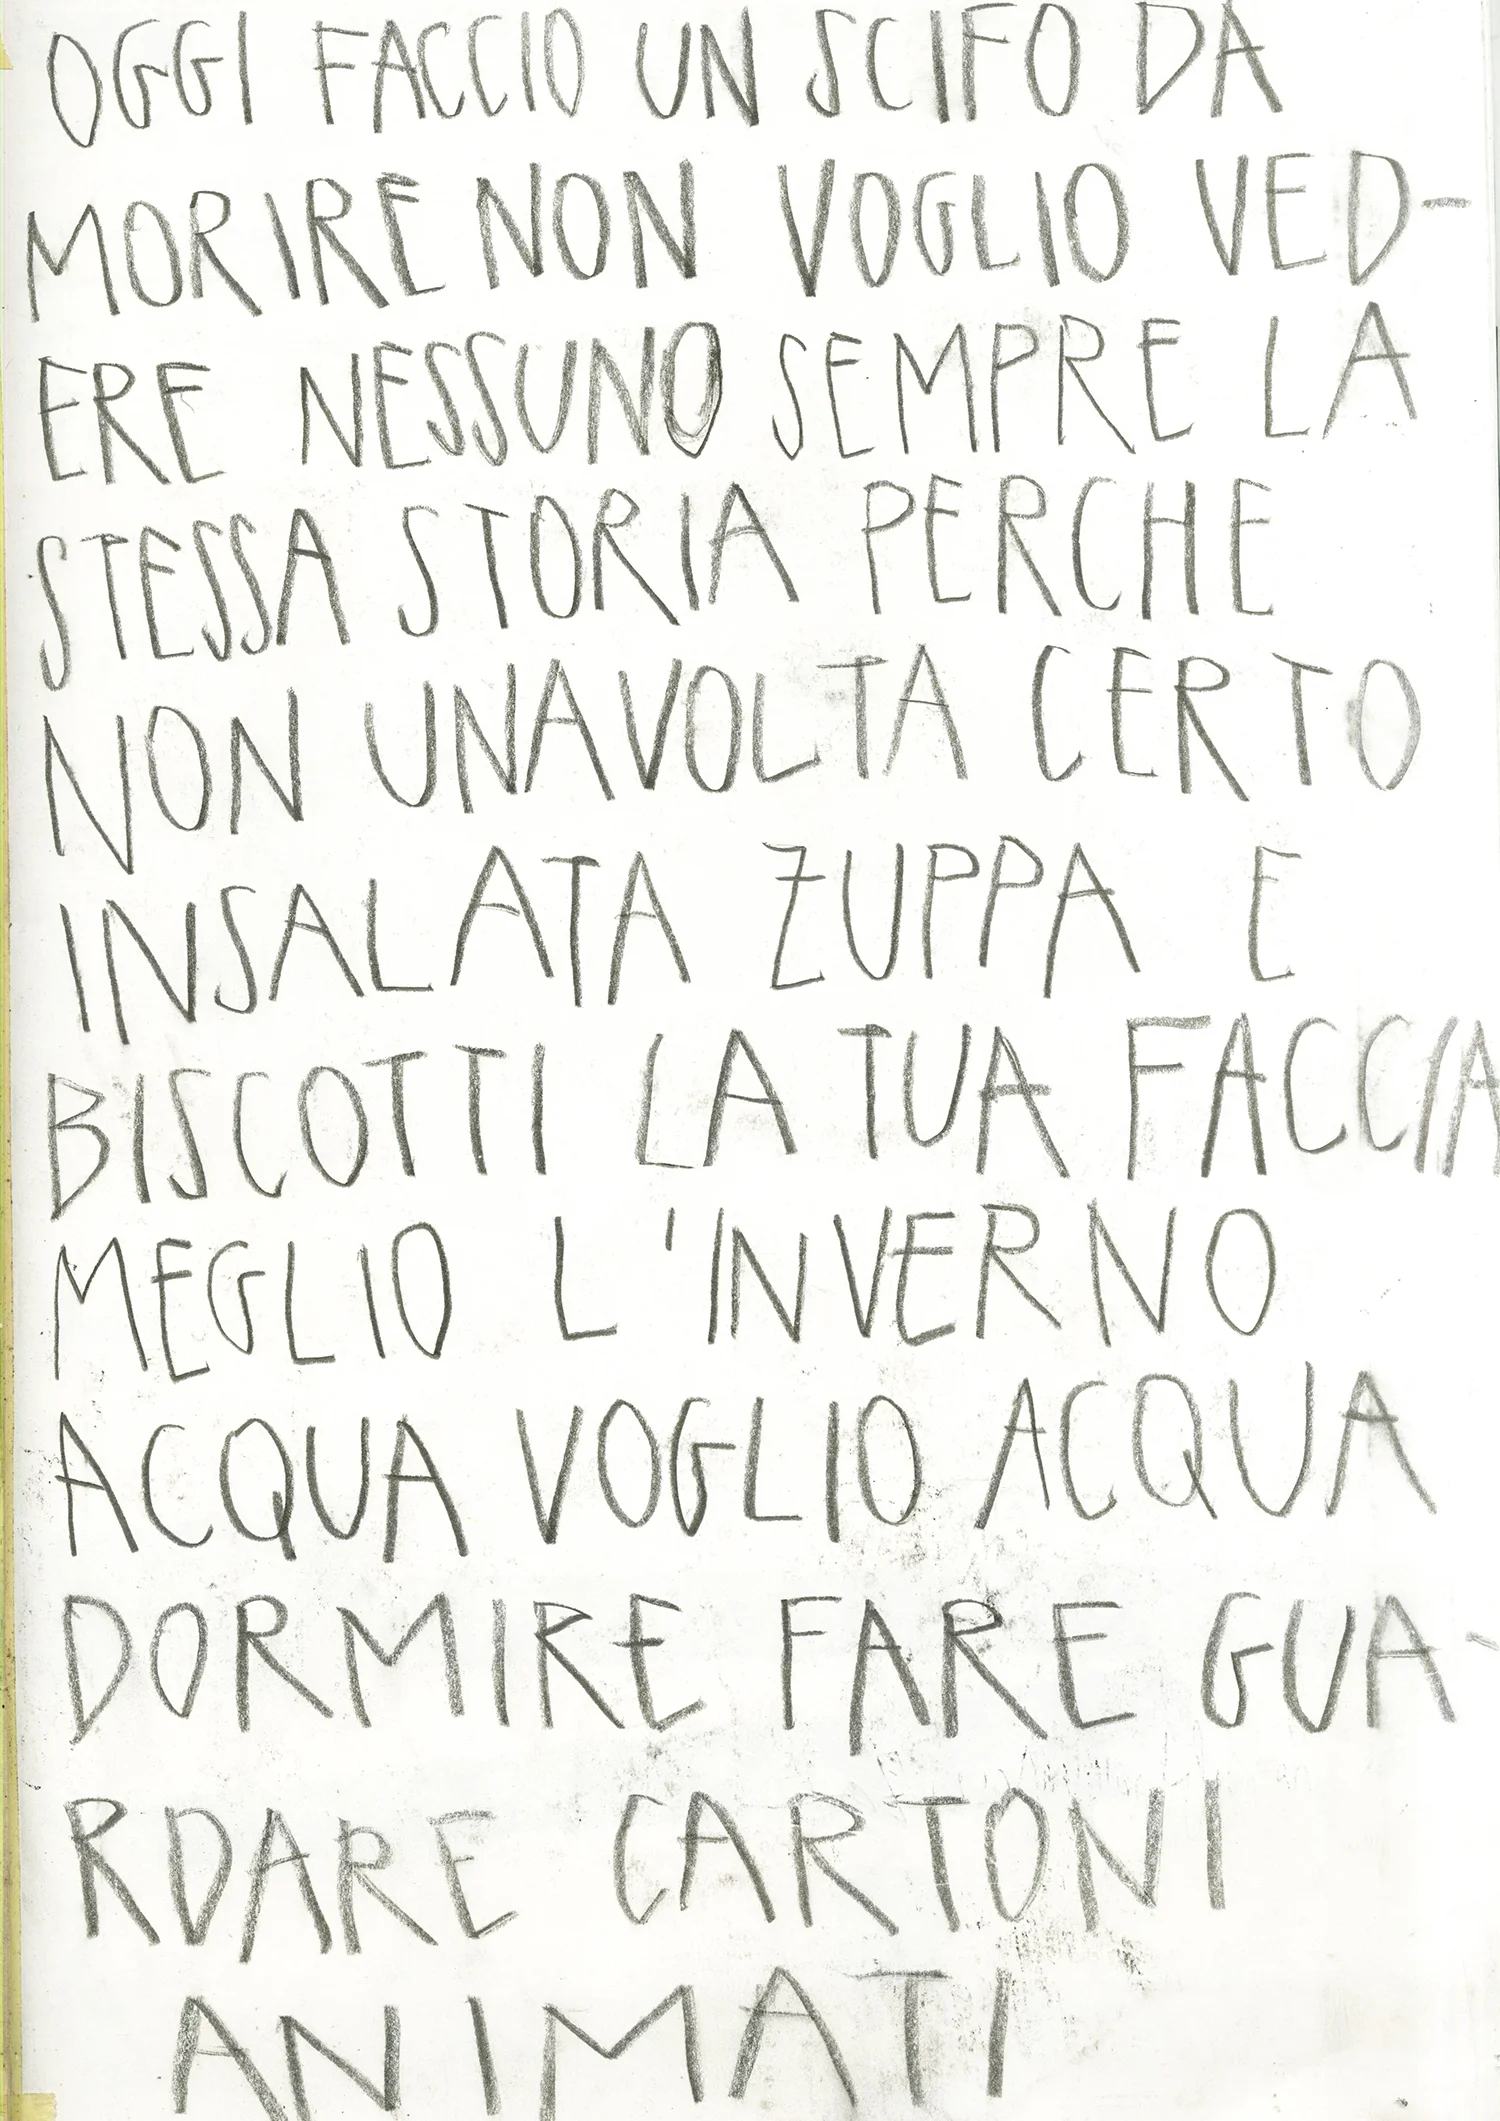 OGGI FACCIO UN SCIFO DA
MORIRE NON VOGLIO VED-
ERE NESSUNO SEMPRE LA
STESSA STORIA PERCHE
NON UNAVOLTA CERTO
INSALATA ZUPPA E
BISCOTTI LA TUA FACCIA
MEGLIO L'INVERNO
ACQUA VOGLIO ACQUA
DORMIRE FARE GUA-
RDARE CARTONI
ANIMATI